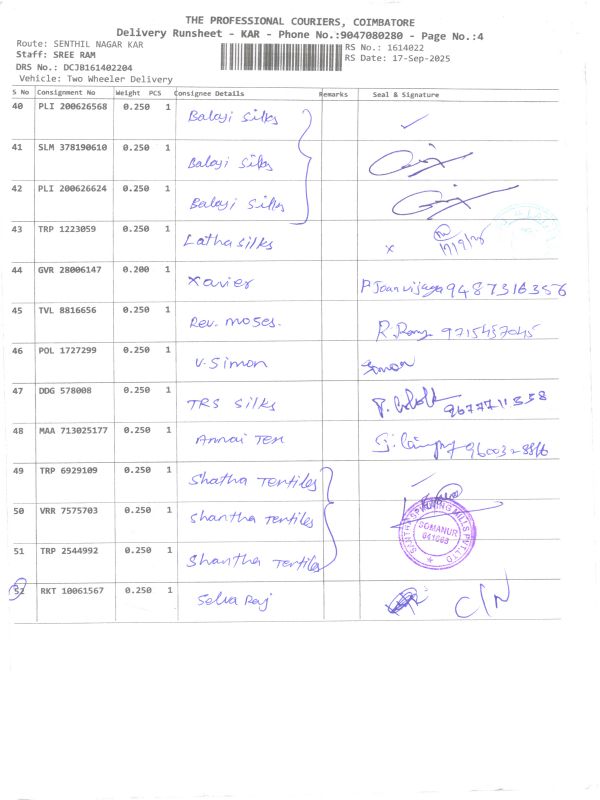 THE PROFESSIONAL COURIERS, COIMBATORE
Delivery Runsheet - KAR - Phone No.:9047080280 - Page No.:4
Route: SENTHIL NAGAR KAR
RS No.: 1614022
Staff: SREE RAM
RS Date: 17-Sep-2025
DRS No.: DCJB161402204
Vehicle: Two Wheeler Delivery
S No Consignment No Weight PCS Consignee Details Remarks Seal & Signature
40 PLI 200626568 0.250 1 Balaji Silks
41 SLM 378190610 0.250 1 Balaji Silks
42 PLI 200626624 0.250 1 Balaji Silks
43 TRP 1223059 0.250 1 Latha silks x 17/9/25
44 GVR 28006147 0.200 1 Xavier 9487316356
45 TVL 8816656 0.250 1 Rev. moses. 9715457045
46 POL 1727299 0.250 1 V. Simon Simon
47 DDG 578008 0.250 1 TRS Silks
48 MAA 713025177 0.250 1 Annai Tex
49 TRP 6929109 0.250 1 Shatha Textiles
50 VRR 7575703 0.250 1 Shantha Textiles
SPINNING MILLS PVT. LTD
SOMANUR
641668
51 TRP 2544992 0.250 1 Shantha Textiles
52 RKT 10061567 0.250 1 Selva Raj C/N